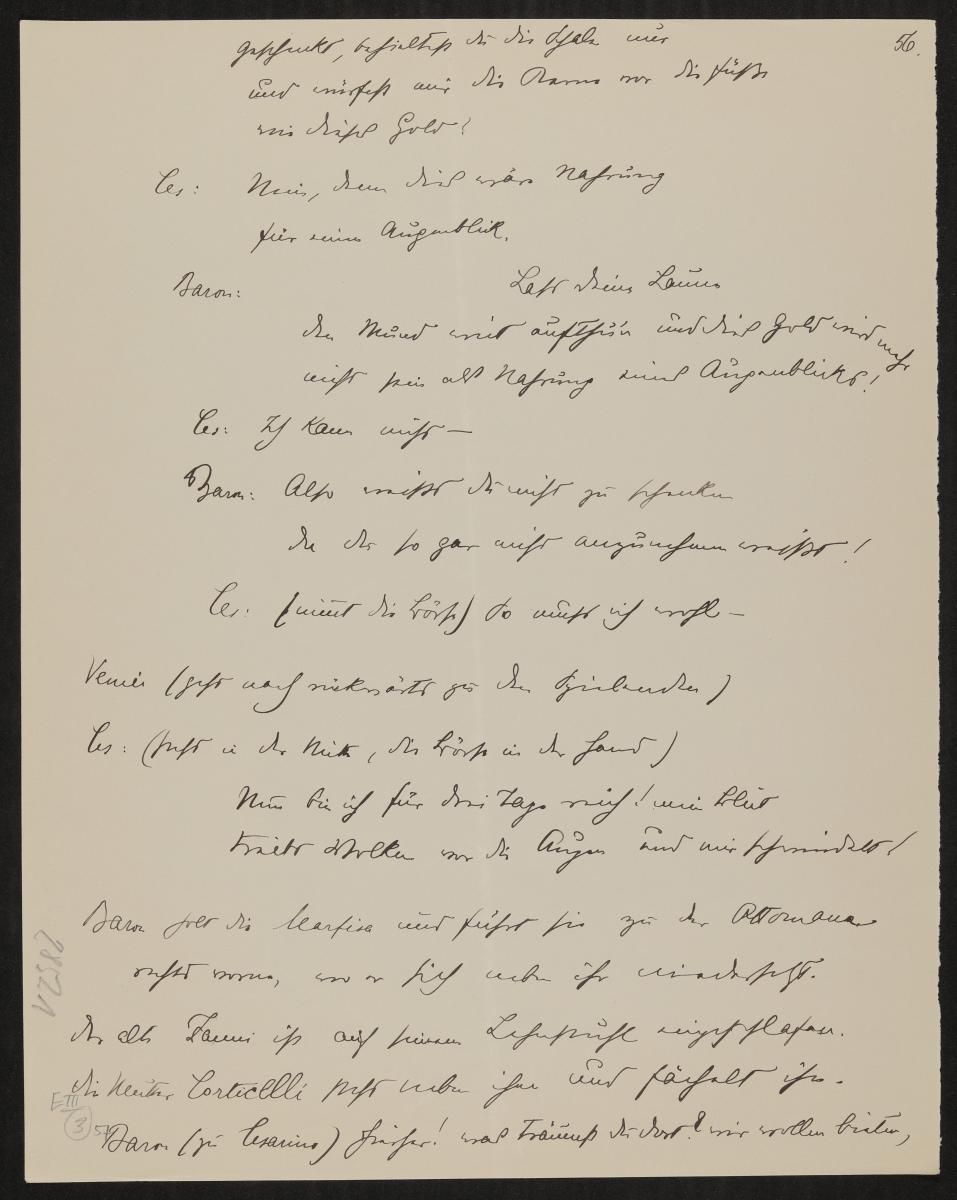 56.
geschenkt, behieltest du die Schale mir
und würfest mir die Barre vor die Füße
wie dieses Gold?
Ces: Nein, denn dies wäre Nahrung
für einen Augenblick.
Baron: Lass deine Laune
den Mund weit aufthun und dies Gold wird mehr
nicht sein als Nahrung eines Augenblicks!
Ces: Ich kann nicht —
Baron: Also weißt du nicht zu schenken
da du so gar nicht anzunehmen weißt!
Ces: (nimmt die Börse) So muss ich wohl —
Venier (geht nach rückwärts zu den Spielenden)
Ces: (steht in der Mitte, die Börse in der Hand)
Nun bin ich für drei Tage reich! mein Blut
treibt Wolken vor die Augen und mir schwindelt!
Baron holt die Marfisa und führt sie zu der Ottomane
rechts vorne, wo er sich neben ihr niedersetzt.
der alte Zanni ist auf seinem Lehnstuhl eingeschlafen.
die Mutter Corticelli steht neben ihm und fächelt ihn.
Baron (zu Cesarino) hierher! was träumst du dort? wir wollen bieten,
E III
3
VII 582